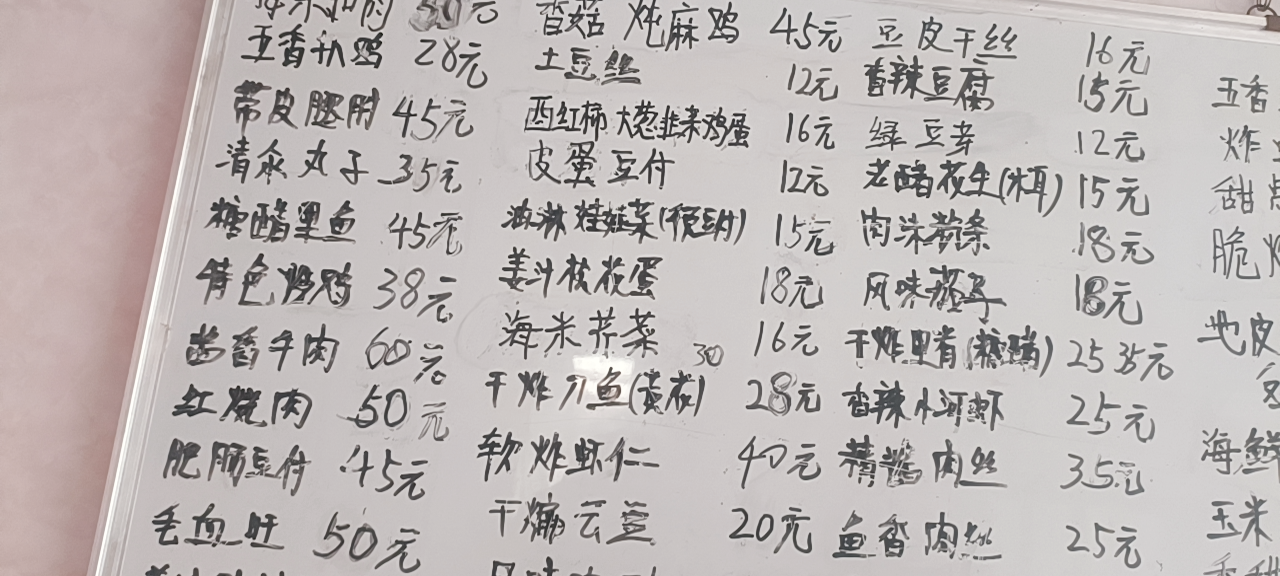 50元
五香扒鸡 28元
带皮腿肘 45元
清汆丸子 35元
糖醋黑鱼 45元
特色炒鸡 38元
茴香牛肉 60元
红烧肉 50元
肥肠豆付 45元
毛血旺 50元
香菇炖麻鸡 45元
土豆丝 12元
西红柿 大葱 韭菜 鸡蛋 16元
皮蛋豆付 12元
油淋娃娃菜 15元
姜汁松花蛋 18元
海米芹菜 16元
干炸刀鱼(黄花) 30 28元
软炸虾仁 40元
干煸云豆 20元
豆皮干丝 16元
香辣豆腐 15元
绿豆芽 12元
老醋花生(木耳) 15元
肉沫粉条 18元
风味茄子 18元
干炸里脊(糖醋) 25 35元
香辣小河虾 25元
精酱肉丝 35元
鱼香肉丝 25元
五香
炸
甜
脆
地皮
海鲜
玉米